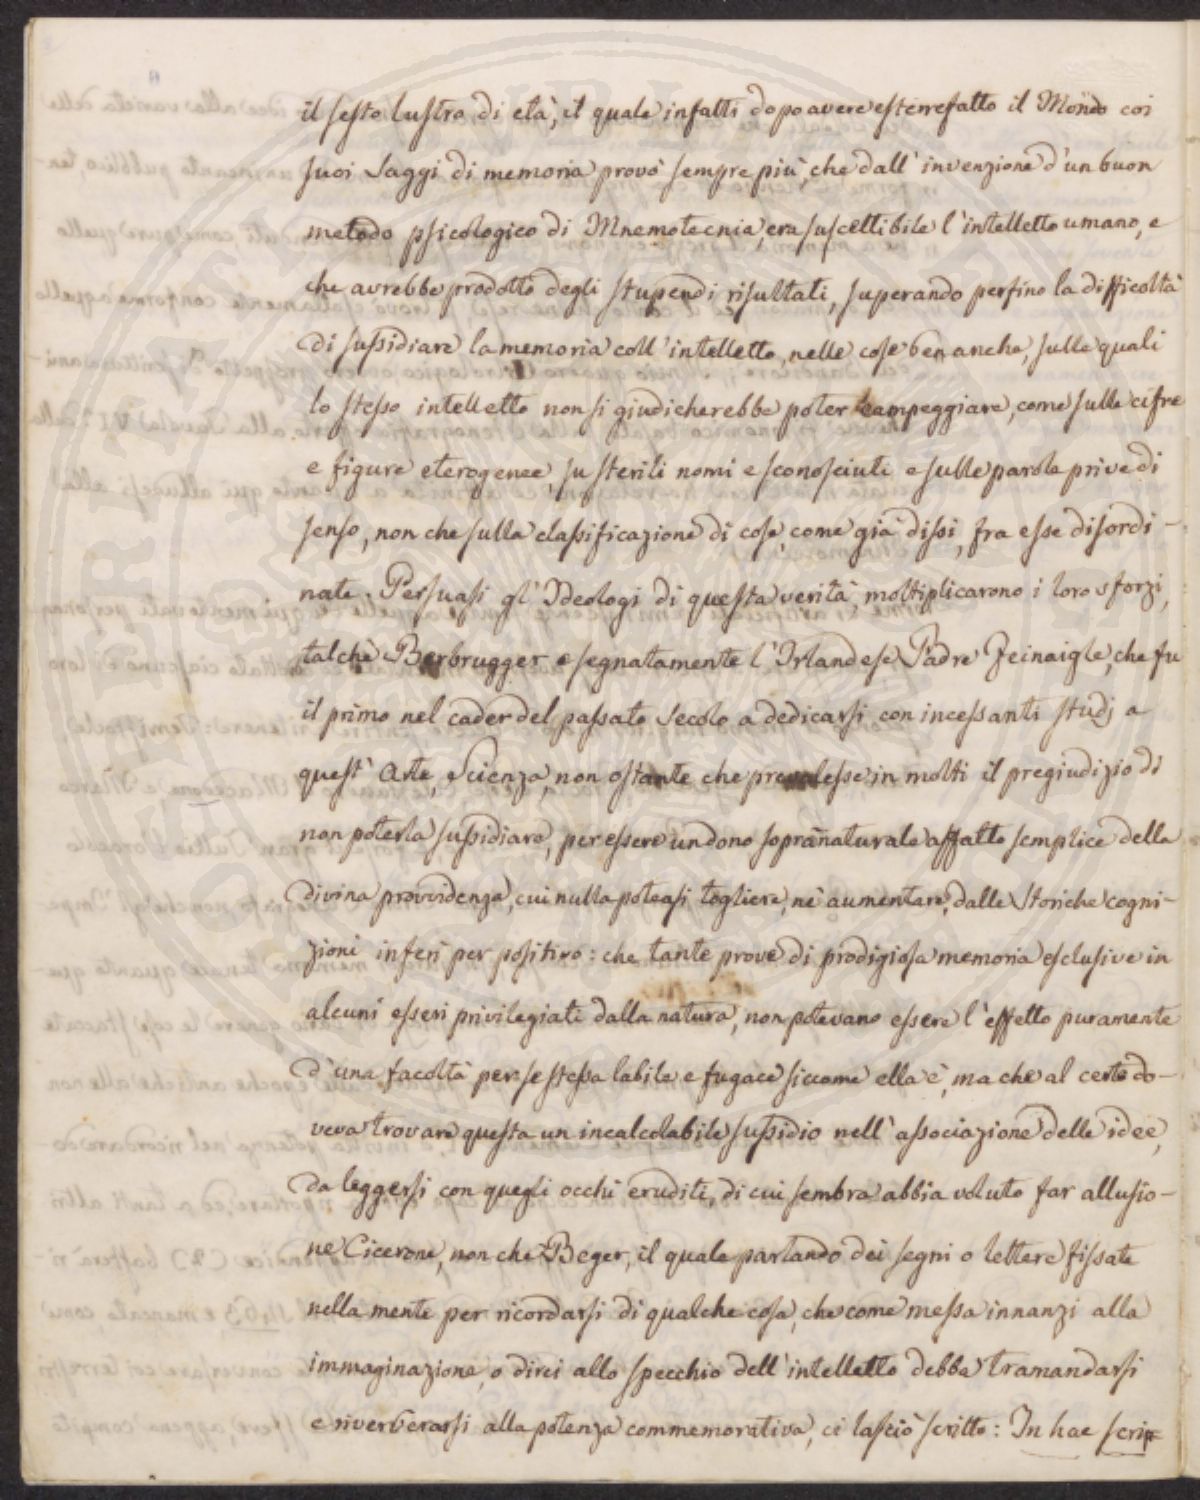 il sesto lustro di età, il quale infatti dopo avere esterrefatto il Mondo coi
suoi Saggi di memoria provò sempre più, che dall' invenzione d'un buon
metodo psicologico di Mnemotecnia, era suscettibile l'intelletto umano, e
che avrebbe prodotto degli stupendi risultati, superando perfino la difficoltà
di sussidiare la memoria coll' intelletto, nelle cose benanche, sulle quali
lo stesso intelletto non si giudicherebbe poter campeggiare, come sulle cifre
e figure eterogenee, su sterili nomi e sconosciuti e sulle parole prive di
senso, non che sulla classificazione di cose, come già dissi, fra esse disordi-
nate. Persuasi gl' Ideologi di questa verità, moltiplicarono i loro sforzi,
talchè Berbrugger e segnatamente l'Irlandese Padre Feinaigle, che fu
il primo nel cader del passato Secolo a dedicarsi con incessanti studj a
quest' Arte, Scienza, non ostante che prevalesse in molti il pregiudizio di
non poterla sussidiare, per essere un dono sopranaturale affatto semplice della
divina provvidenza, cui nulla poteasi togliere, nè aumentare, dalle Storiche cogni-
zioni inferì per positivo: che tante prove di prodigiosa memoria esclusive in
alcuni esseri privilegiati dalla natura, non potevano essere l'effetto puramente
d'una facoltà per se stessa labile e fugace siccome ella è, ma che al certo do-
veva trovare questa un incalcolabile sussidio nell' associazione delle idee,
da leggersi con quegli occhi eruditi, di cui sembra abbia voluto far allusio-
ne Cicerone, non che Beger, il quale parlando dei segni o lettere fissate
nella mente per ricordarsi di qualche cosa, che come messa innanzi alla
immaginazione, o direi allo specchio dell' intelletto debba tramandarsi
e riverberarsi alla potenza commemorativa, ci lasciò scritto: In hac scrip=